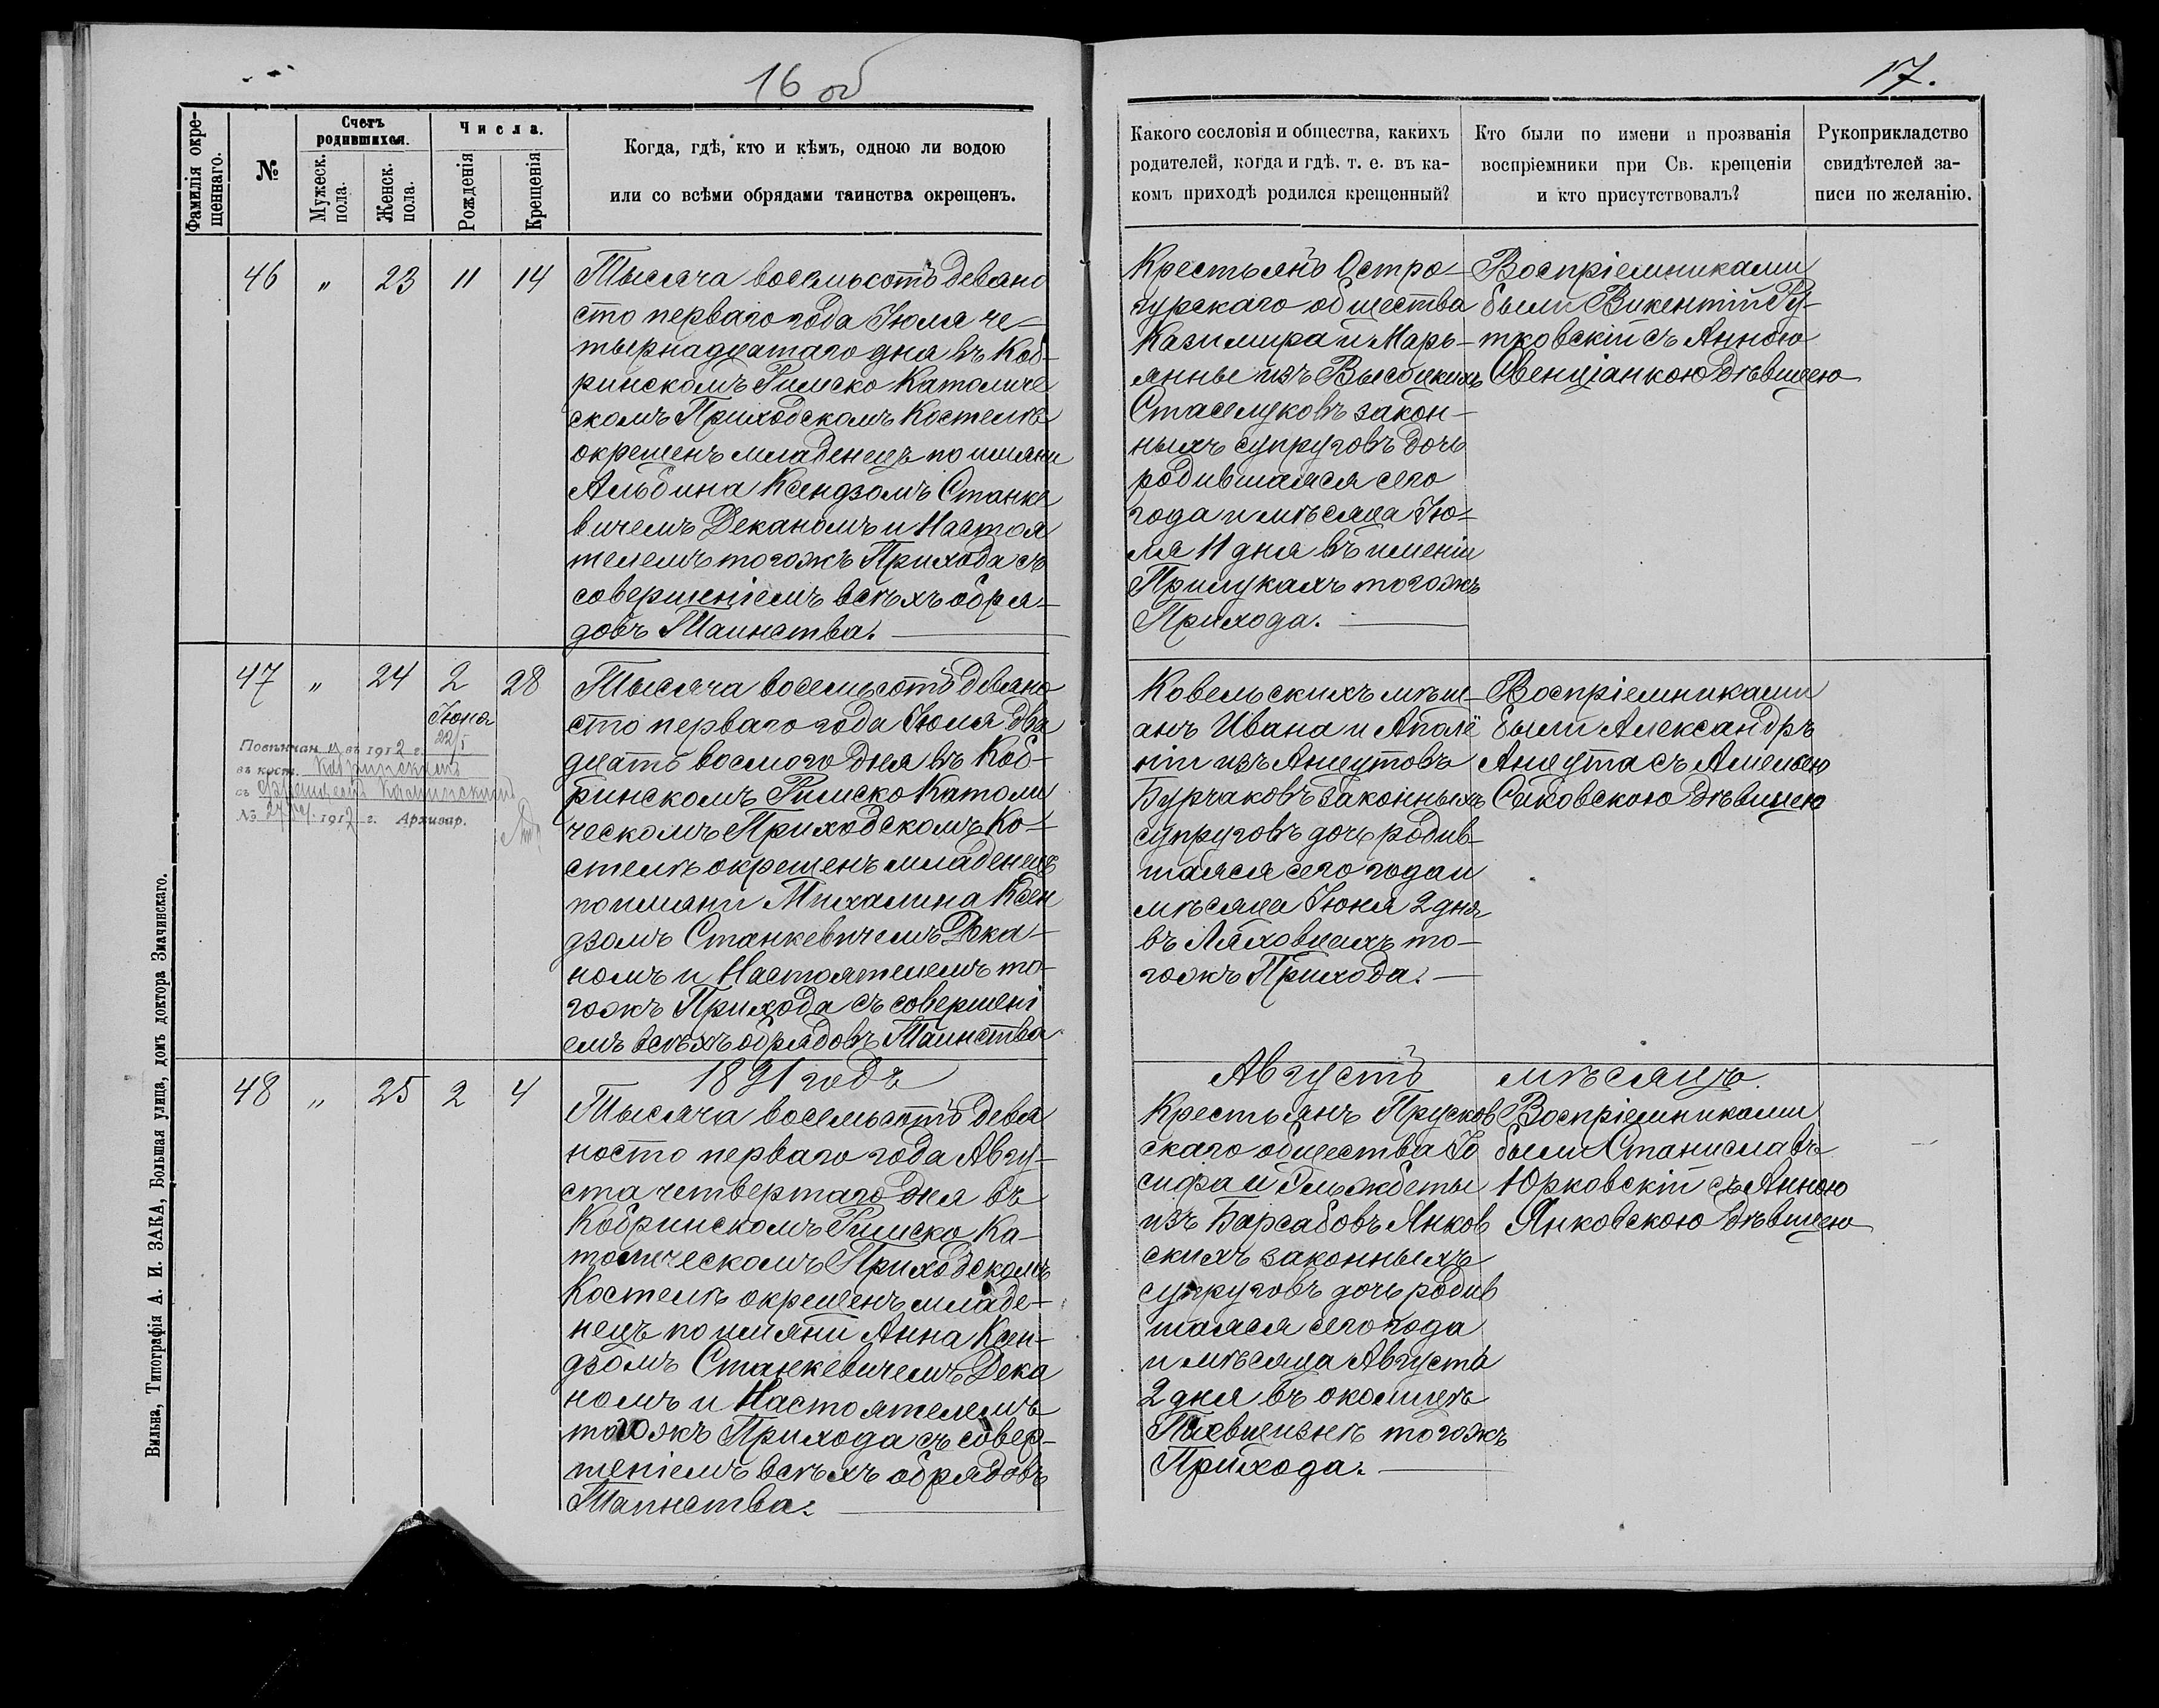 16 об
17.
Фамилія окре-
щеннаго.
№
Счетъ
родившихся.
Мужеск.
пола.
Женск.
пола.
Числа.
Рожденія
Крещенія
Когда, гдѣ, кто и кѣмъ, одною ли водою
или со всѣми обрядами таинства окрещенъ.
Какого сословія и общества, какихъ
родителей, когда и гдѣ. т. е. въ ка-
комъ приходѣ родился крещенный?
Кто были по имени и прозванія
воспріемники при Св. крещеніи
и кто присутствовалъ?
Рукоприкладство
свидѣтелей за-
писи по желанію.
46 „ 23 11 14
Тысяча восемьсотъ девяно
сто перваго года Іюля че-
тырнадцатаго дня въ Коб-
ринскомъ Римско Католиче
скомъ Приходскомъ Костелѣ
окрещенъ младенецъ по имяни
Альбина Ксендзомъ Станке
вичемъ Деканомъ и Настоя
телемъ тогожъ Прихода съ
совершеніемъ всѣхъ обря-
довъ Таинства.
Крестьянъ Остро-
гурскаго общества
Казимира и Марь-
янны изъ Высоцкихъ
Стасюковъ закон-
ныхъ супруговъ дочь
родившаяся сего
года и мѣсяца Ію-
ля 11 дня въ имѣніи
Прилукахъ тогожъ
Прихода.
Воспріемниками
были Викентій Ру-
тковскій съ Анною
Свенціанкою дѣвицею
47 „ 24 2 28
Іюня
Повѣнчан а въ 1912 г. 22/I
въ кост. Кобринскомъ
съ
№ 1912 г. Архивар.
Тысяча восемьсотъ девяно
сто перваго года Іюля два
дцать восмого дня въ Коб-
ринскомъ Римско Католи
ческомъ Приходскомъ Ко-
стелѣ окрещенъ младенецъ
по имяни Михалина Ксен
дзомъ Станкевичемъ Дека-
номъ и Настоятелемъ то-
гожъ Прихода съ совершені
емъ всѣхъ обрядовъ Таинства
Ковельскихъ мѣщ-
анъ Ивана и Аполё
ніи изъ Анцутовъ
Бурчаковъ законныхъ
супруговъ дочь родив-
шаяся сего года и
мѣсяца Іюня 2 дня
въ Ляховцахъ то-
гожъ Прихода.
Воспріемниками
были Александръ
Анцута съ Амелією
Саковскою дѣвицею
1891 годъ Августъ мѣсяцъ.
48 „ 25 2 4
Тысяча восемьсотъ девя
носто перваго года Авгу-
ста четвертаго дня въ
Кобринскомъ Римско Ка-
толическомъ Приходскомъ
Костелѣ окрещенъ младе-
нецъ по имяни Анна Ксен-
дзомъ Станкевичемъ Дека
номъ и Настоятелемъ
тогожъ Прихода съ совер-
шеніемъ всѣхъ обрядовъ
Таинства.
Крестьянъ Прусков
скаго общества Іо
сифа и Эльжбеты
изъ Барсабовъ Янков
скихъ законныхъ
супруговъ дочь родив
шаяся сего года
и мѣсяца Августа
2 дня въ околицѣ
тогожъ
Прихода.
Воспріемниками
были Станиславъ
Юрковскій съ Анною
Янковскою дѣвицею
Вильна, Типографія А. И. ЗАКА, Большая улица, домъ доктора Змачинскаго.